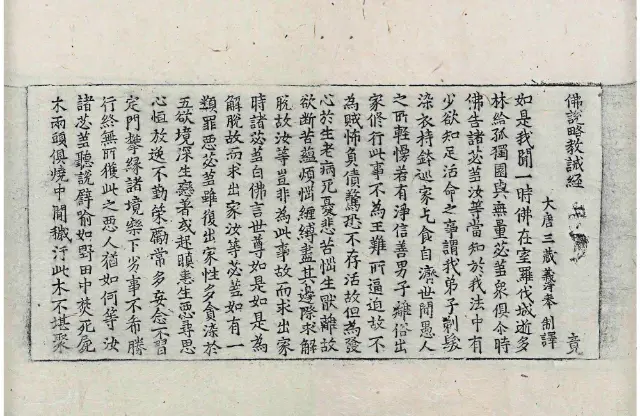 佛說略教誡經 竟
大唐三藏義淨奉 制譯
如是我聞一時佛在室羅伐城逝多
林給孤獨園與無量苾芻眾俱尒時
佛告諸苾芻汝等當知於我法中有
少欲知足活命之事謂我弟子剃髮
染衣持鉢巡家乞食自濟世間愚人
之所輕慢若有淨信善男子離俗出
家修行此事不為王難所逼迫故不
為賊怖負債驚恐不存活故但為發
心於生老病死憂悲苦惱生猒離故
欲斷苦蘊煩惱纏縛盡其邊際求解
脫故汝等豈非為此事故而求出家
時諸苾芻白佛言世尊如是如是為
解脫故而求出家汝等苾芻如有一
類罪惡苾芻雖復出家性多貪染於
五欲境深生戀著或起瞋恚生惡尋思
心恒放逸不勤榮勵常多妄念不習
定門攀緣諸境樂下劣事不希勝
行終無所獲此之惡人猶如何等汝
諸苾芻聽說譬喻如野田中焚死屍
木兩頭俱燒中間穢汙此木不堪聚